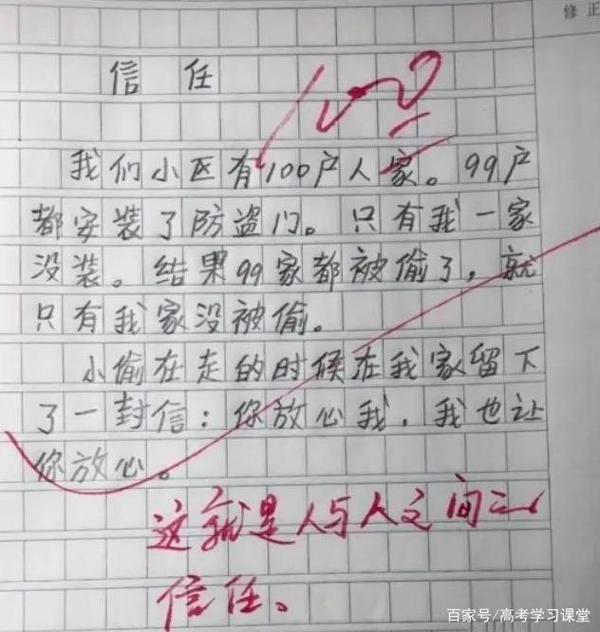 修正
信任
100
我们小区有100户人家。99户
都安装了防盗门。只有我一家
没装。结果99家都被偷了，就
只有我家没被偷。
小偷在走的时候在我家留下
了一封信：你放心我，我也让
你放心。
这就是人与人之间之
信任。
百家号/高考学习课堂